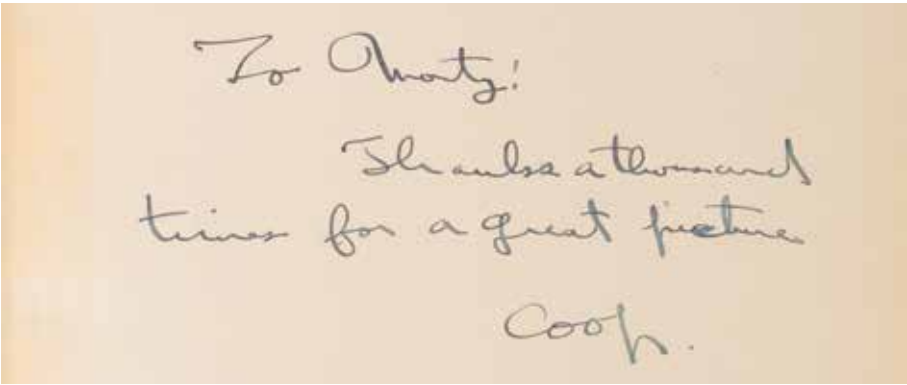 To Monty:
Thanks a thousand
times for a great picture
Coop.